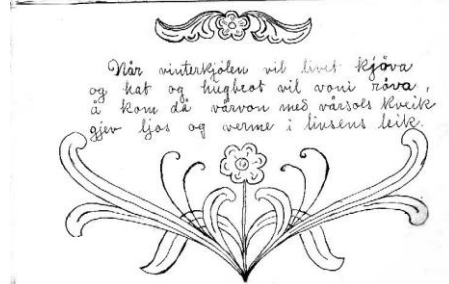 Når vinterkjölen vil livet kjöva
og hat og hugbrot vil voni röva,
å kom då vårvon med vårsols kveik
gjev ljos og verme i livsens leik.